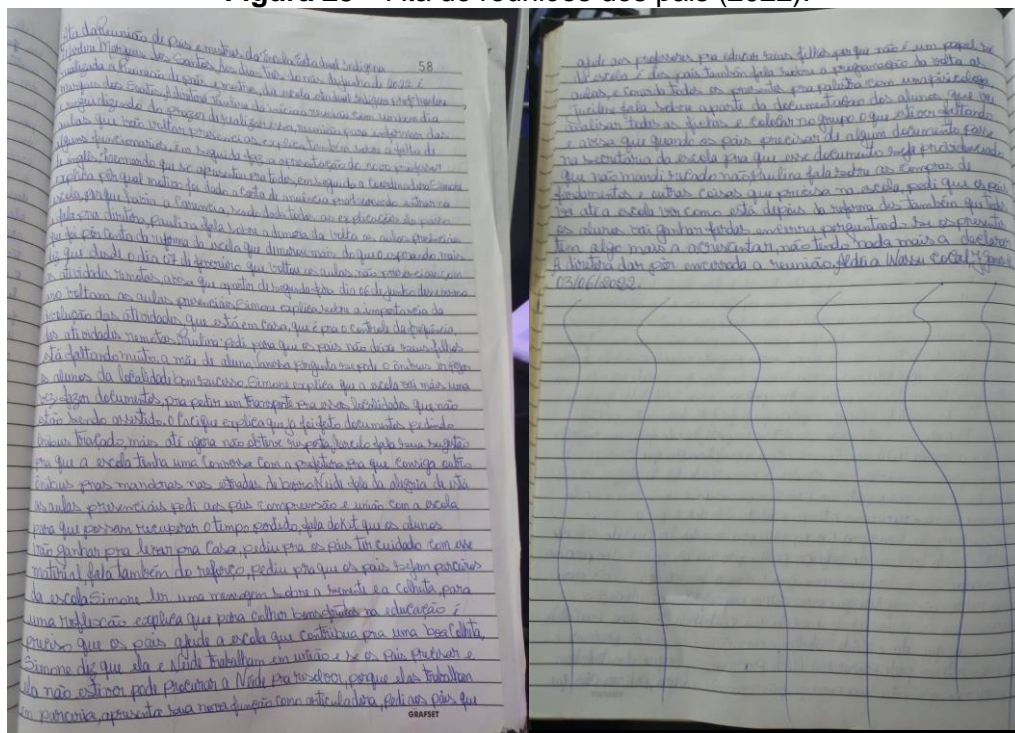 Figura 25 – Ata de reuniões dos pais (2022).
58
Ata da Reunião de Pais e mestres da Escola Estadual Indígena
Marques dos Santos, Aos dias Três do mês de junho de 2022 é
realizada a Reunião de pais e mestre, da escola estadual indígena
Marques dos Santos, A diretora Paulina da início na reunião com um bom dia
e seguir dizendo da prazer de realizar essa reunião para informar das
aulas que vão voltar presenciais, explica também sobre a falta de
alguns funcionarios, em seguida faz a apresentação do novo professor
de inglês, Informando que se apresentou pra todos, em seguida a Coordenadora Simone
explica por qual motivo foi dado a carta de anuência
escola, porque havia a
a fala pra diretora, Paulina fala sobre a demora da volta as aulas presenciais
que foi por conta da reforma da escola que demorou mais do que o esperado mais
diz que desde o dia 07 de fevereiro que voltou as aulas não presenciais com
as atividades remotas, avisa que apartir de segunda-feira dia 06 de junho
ano voltam as aulas presenciais Simone explica sobre a importancia da
devolução das atividades que está em casa, que é pra o controle da frequência,
das atividades remotas. Paulina pedi para que os pais não deixe seus filhos
está faltando muito, a mãe da aluna pergunta se pode o ônibus
os alunos da localidade bom sucesso. Simone explica que a escola vai mais uma
vez fazer documentos, pra pedir um transporte pra essas localidades que não
estão sendo assistido, O Cacique explica que ja foi feito documentos pedindo
ônibus traçado mais até agora não obtive resposta, fala sua sugestão
pra que a escola tenha uma conversa com a prefeitura pra que consiga outro
ônibus nas estradas de barro Neide fala da alegria de está
as aulas presenciais pedi aos pais compreensão e união com a escola
para que possam recuperar o tempo perdido, fala do kit que os alunos
irão ganhar pra levar pra casa, pediu pra os pais ter cuidado com esse
material fala também do reforço, pediu pra que os pais sejam parceiros
da escola Simone ler uma mensagem sobre a semente e a colheita, para
uma reflexão explica que para colher bons frutos na educação é
preciso que os pais ajude a escola que contribua pra uma boa colheita,
Simone diz que ela e Neide trabalham em união e se os pais precisar e
ela não estiver pode procurar a Neide pra resolver, porque elas trabalham
em parceria, apresenta sua nova função como articuladora, Pedi aos pais que
GRAFSET
ajude aos professores pra educar seus filhos porque não é um papel só
da escola é dos pais também fala sobre a programação da volta as
aulas, e convida todos os presente pra palestra com uma psicologa
fala sobre aparti da documentação dos alunos que vai
analisar todas as fichas e colocar no grupo o que estiver faltando
e avisa que quando os pais precisar de algum documento passe
na secretária da escola pra que esse documento seja providenciado
que não mandi recado não Paulina fala sobre as compras de
fardamentos e outras coisas que precisa na escola, pedi que os pais
vá até a escola ver como está depois da reforma diz também que todos
os alunos vai ganhar fardas encerra perguntand. se os presente
tem algo mais a acrescentar, não tendo nada mais a declarar
A diretora dar por encerrada a reunião, Aldria Wassu Cocal
03/06/2022.